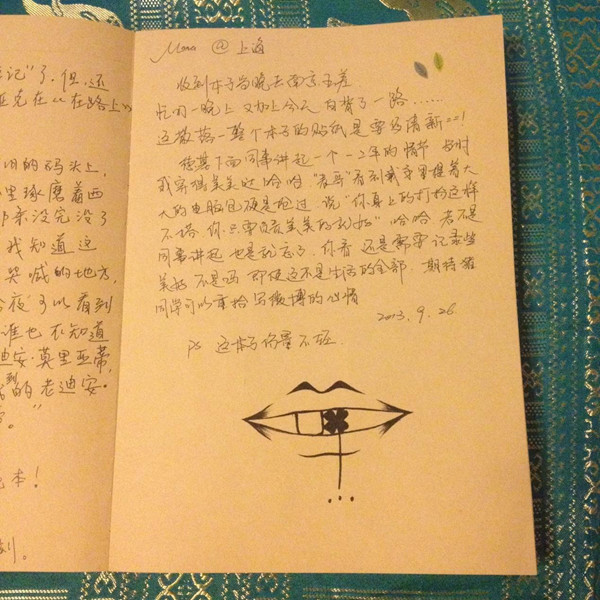 记”了，但，还
亚克在《在路上》
旧的码头上，
里琢磨着西
那亲没完没了
我知道这
哭喊的地方，
今夜可以看到
谁也不知道
迪安·莫里亚蒂，
到
的老迪安。
。”
本！
Mona @ 上海
收到本子当晚去南京出差
忙到一晚上 又加上今天 白背了一路……
这散落一整个本子的贴纸是要多清新==！
想某下面同事讲起一个一二年的情节 当时
我穿得美美哒 哈哈 看到我拿着挺大
大的电脑包硬是抢过 说“你身上的打扮这样
不搭 你只要负责美美的就好”哈哈 若不是
同事讲起 也是就忘了，你看 还是需要记录些
美好 不是吗 即使这不是生活的全部，期待
同学可以重拾写微博的心情
2013.9.26
Ps 这本子份量不轻